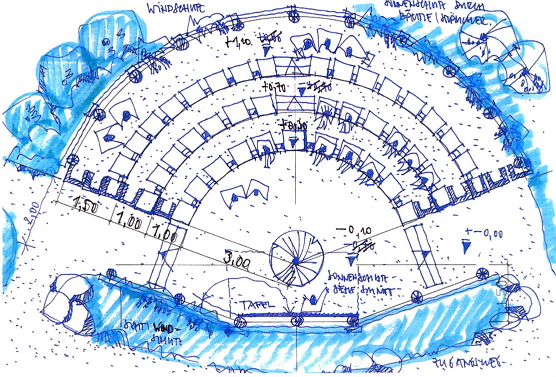 WINDSCHUTZ
SONNENSCHUTZ DURCH
BÄUME / STRÄUCHER
+1,10
+0,70
+0,30
2,00
1,50
1,00
1,00
3,00
-0,10
+-0,00
SONNENSCHUTZ
TAFEL
SICHT/WIND-
SCHUTZ
ZUGANGSWEG